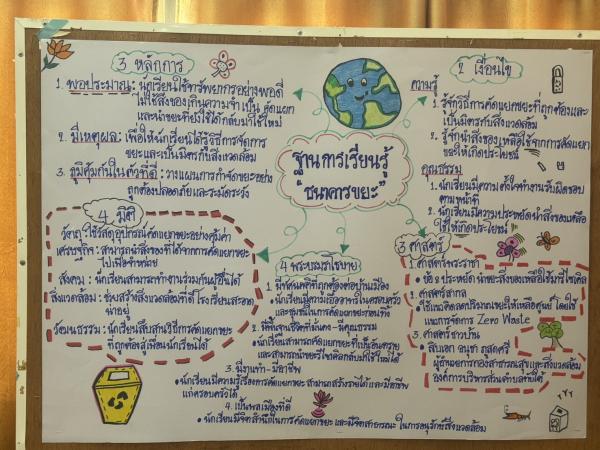 3 หลักการ
1. พอประมาณ : นักเรียนใช้ทรัพยากรอย่างพอดี
ไม่ใช้สิ่งของเกินความจำเป็น คัดแยก
และนำขยะที่ยังใช้ได้กลับมาใช้ใหม่
2. มีเหตุผล : เพื่อให้นักเรียนได้รู้วิธีการจัดการ
ขยะและเป็นมิตรกับสิ่งแวดล้อม
3. ภูมิคุ้มกันในตัวที่ดี : วางแผนการกำจัดขยะอย่าง
ถูกต้องปลอดภัย และระมัดระวัง
ฐานการเรียนรู้
"ธนาคารขยะ"
2 เงื่อนไข
ความรู้
1. รู้จักวิธีการคัดแยกขยะที่ถูกต้องและ
เป็นมิตรกับสิ่งแวดล้อม
2. รู้จักนำสิ่งของเหลือใช้จากการคัดแยก
ขยะให้เกิดประโยชน์
คุณธรรม
1. นักเรียนมีความตั้งใจทำงานรับผิดชอบ
ตามหน้าที่
2. นักเรียนมีความประหยัดนำสิ่งของเหลือ
ใช้ให้เกิดประโยชน์
4 มิติ
วัตถุ : ใช้วัสดุอุปกรณ์คัดแยกขยะอย่างคุ้มค่า
เศรษฐกิจ : สามารถนำสิ่งของที่ได้จากการคัดแยกขยะ
ไปเพื่อจำหน่าย
สังคม : นักเรียนสามารถทำงานร่วมกับผู้อื่นได้
สิ่งแวดล้อม : ช่วยสร้างสิ่งแวดล้อมที่ดี โรงเรียนสะอาด
น่าอยู่
วัฒนธรรม : นักเรียนสืบสานวิธีการคัดแยกขยะ
ที่ถูกต้องสู่เพื่อนนักเรียนได้
4 พระบรมราโชบาย
1. มีทัศนคติที่ถูกต้องต่อบ้านเมือง
• นักเรียนมีความเอื้ออาทรในครอบครัว
และชุมชนในการคัดแยกขยะก่อนทิ้ง
2. มีพื้นฐานชีวิตที่มั่นคง - มีคุณธรรม
• นักเรียนสามารถคัดแยกขยะที่เปื้อนอันตราย
และสามารถนำขยะรีไซเคิลกลับมาใช้ใหม่ได้
3. มีงานทำ - มีอาชีพ
• นักเรียนมีความรู้เรื่องการคัดแยกขยะ สามารถสร้างรายได้ และมีอาชีพ
แก่ครอบครัวได้
4. เป็นพลเมืองที่ดี
• นักเรียนมีจิตสำนึกในการคัดแยกขยะ และมีจิตสาธารณะ ในการอนุรักษ์สิ่งแวดล้อม
3 ศาสตร์
1. ศาสตร์พระราชา
• ข้อ ประหยัด นำขยะสิ่งของเหลือใช้มารีไซเคิล
2. ศาสตร์สากล
ใช้แนวคิดลดปริมาณขยะให้เหลือศูนย์ โดยใช้
แนวการจัดการ Zero Waste
3. ศาสตร์ชาวบ้าน
สิบเอก
ผู้อำนวยการกองสาธารณสุขและสิ่งแวดล้อม
องค์การบริหารส่วนตำบล